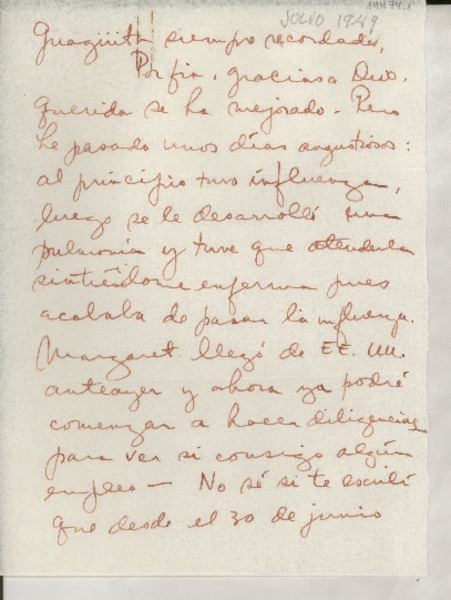 JULIO 1949
siempre recordada,
Por fin, gracias a Dios,
querida se ha mejorado. Pero
he pasado unos días angustiosos:
al principio tuvo influenza,
luego se le desarrolló una
pulmonía y tuve que atenderla
sintiéndome enferma pues
acababa de pasar la influenza.
Margaret llegó de EE. UU.
anteayer y ahora ya podré
comenzar a hacer diligencias
para ver si consigo algún
empleo — No sé si te escribí
que desde el 30 de junio